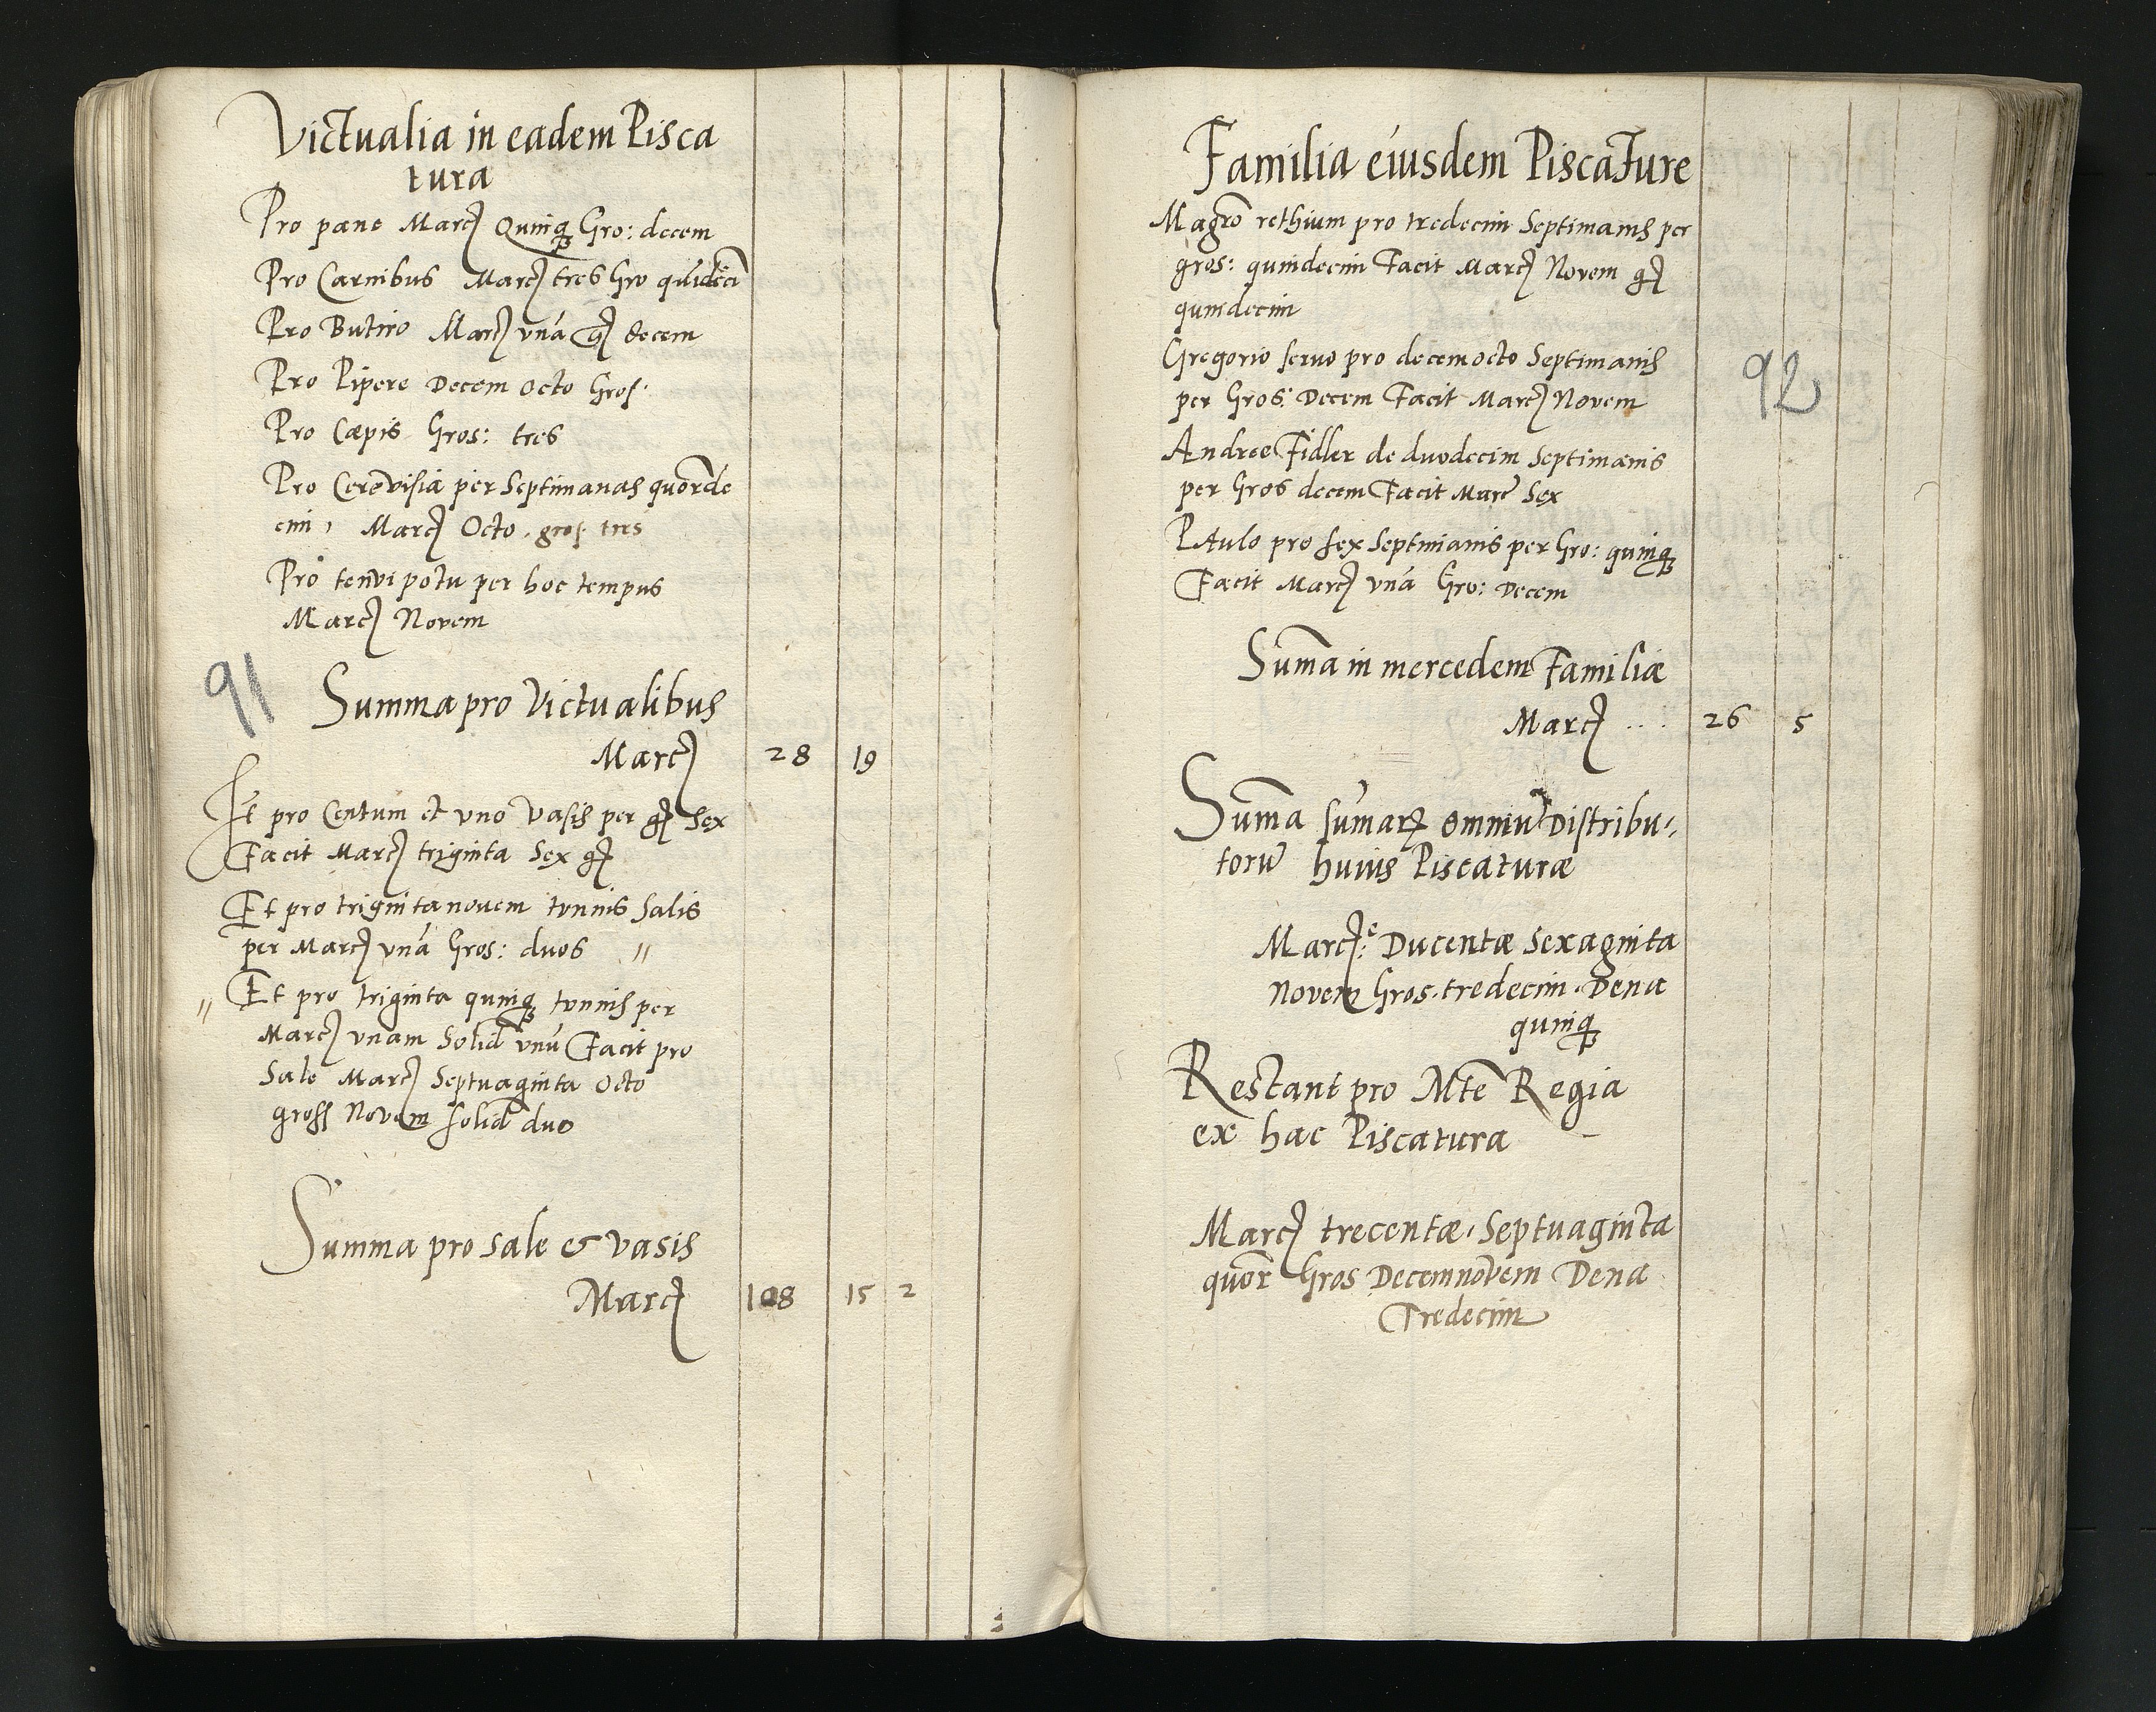 Victualia in eadem Pisca
tura
Pro pane Marc Quinq Gro: decem
Pro Carnibus Marc tres Gro quideci
Pro Butiro Marc vna g decem
Pro Pipere Decem octo Gros:
Pro Cæpis Gros: tres
Pro Cerevisia per Septimanas quorde
cim, Marc Octo. gros. tres
Pro tenvi potu per hoc tempus
Marc Novem
91
Summa pro Victualibus
Marc 28 19
Et pro Centum et vno vasis per g Sex
Facit Marc triginta Sex g
Et pro triginta novem tvnnis Salis
per Marc vna Gros: duos "
" Et pro triginta quinq tvnnis per
Marc vnam Solid vnu Facit pro
Sale Marc Septuaginta Octo
gross Novem solid duo
Summa pro sale & vasis
Marc 108 15 2
Familia eiusdem Piscature
Magro rethium pro tredecim Septimanis per
gros: quindecim Facit Marc Novem g
quindecim
Gregorio servo pro decemocto Septimanis
per Gros: Decem Facit Marc Novem
92
Andree Fidler de duodecim Septimanis
per Gros decem Facit Marc Sex
Paulo pro sex Septimanis per Gro: quinq
Facit Marc vna Gro: Decem
Suma in mercedem Familiæ
Marc .... 26 5
Suma sumar omniu Distribu-
toru huius Piscaturæ
Marc: Ducentæ Sexaginta
Novem Gros. tredecim. Dena
quinq
Restant pro Mte Regia
ex hac Piscatura
Marc trecentæ. Septuaginta
quor Gros Decemnovem Dena
Tredecim